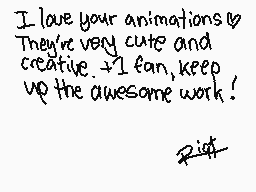 I love your animations ♡
They're very cute and
creative. +1 fan, keep
up the awesome work!
Riot